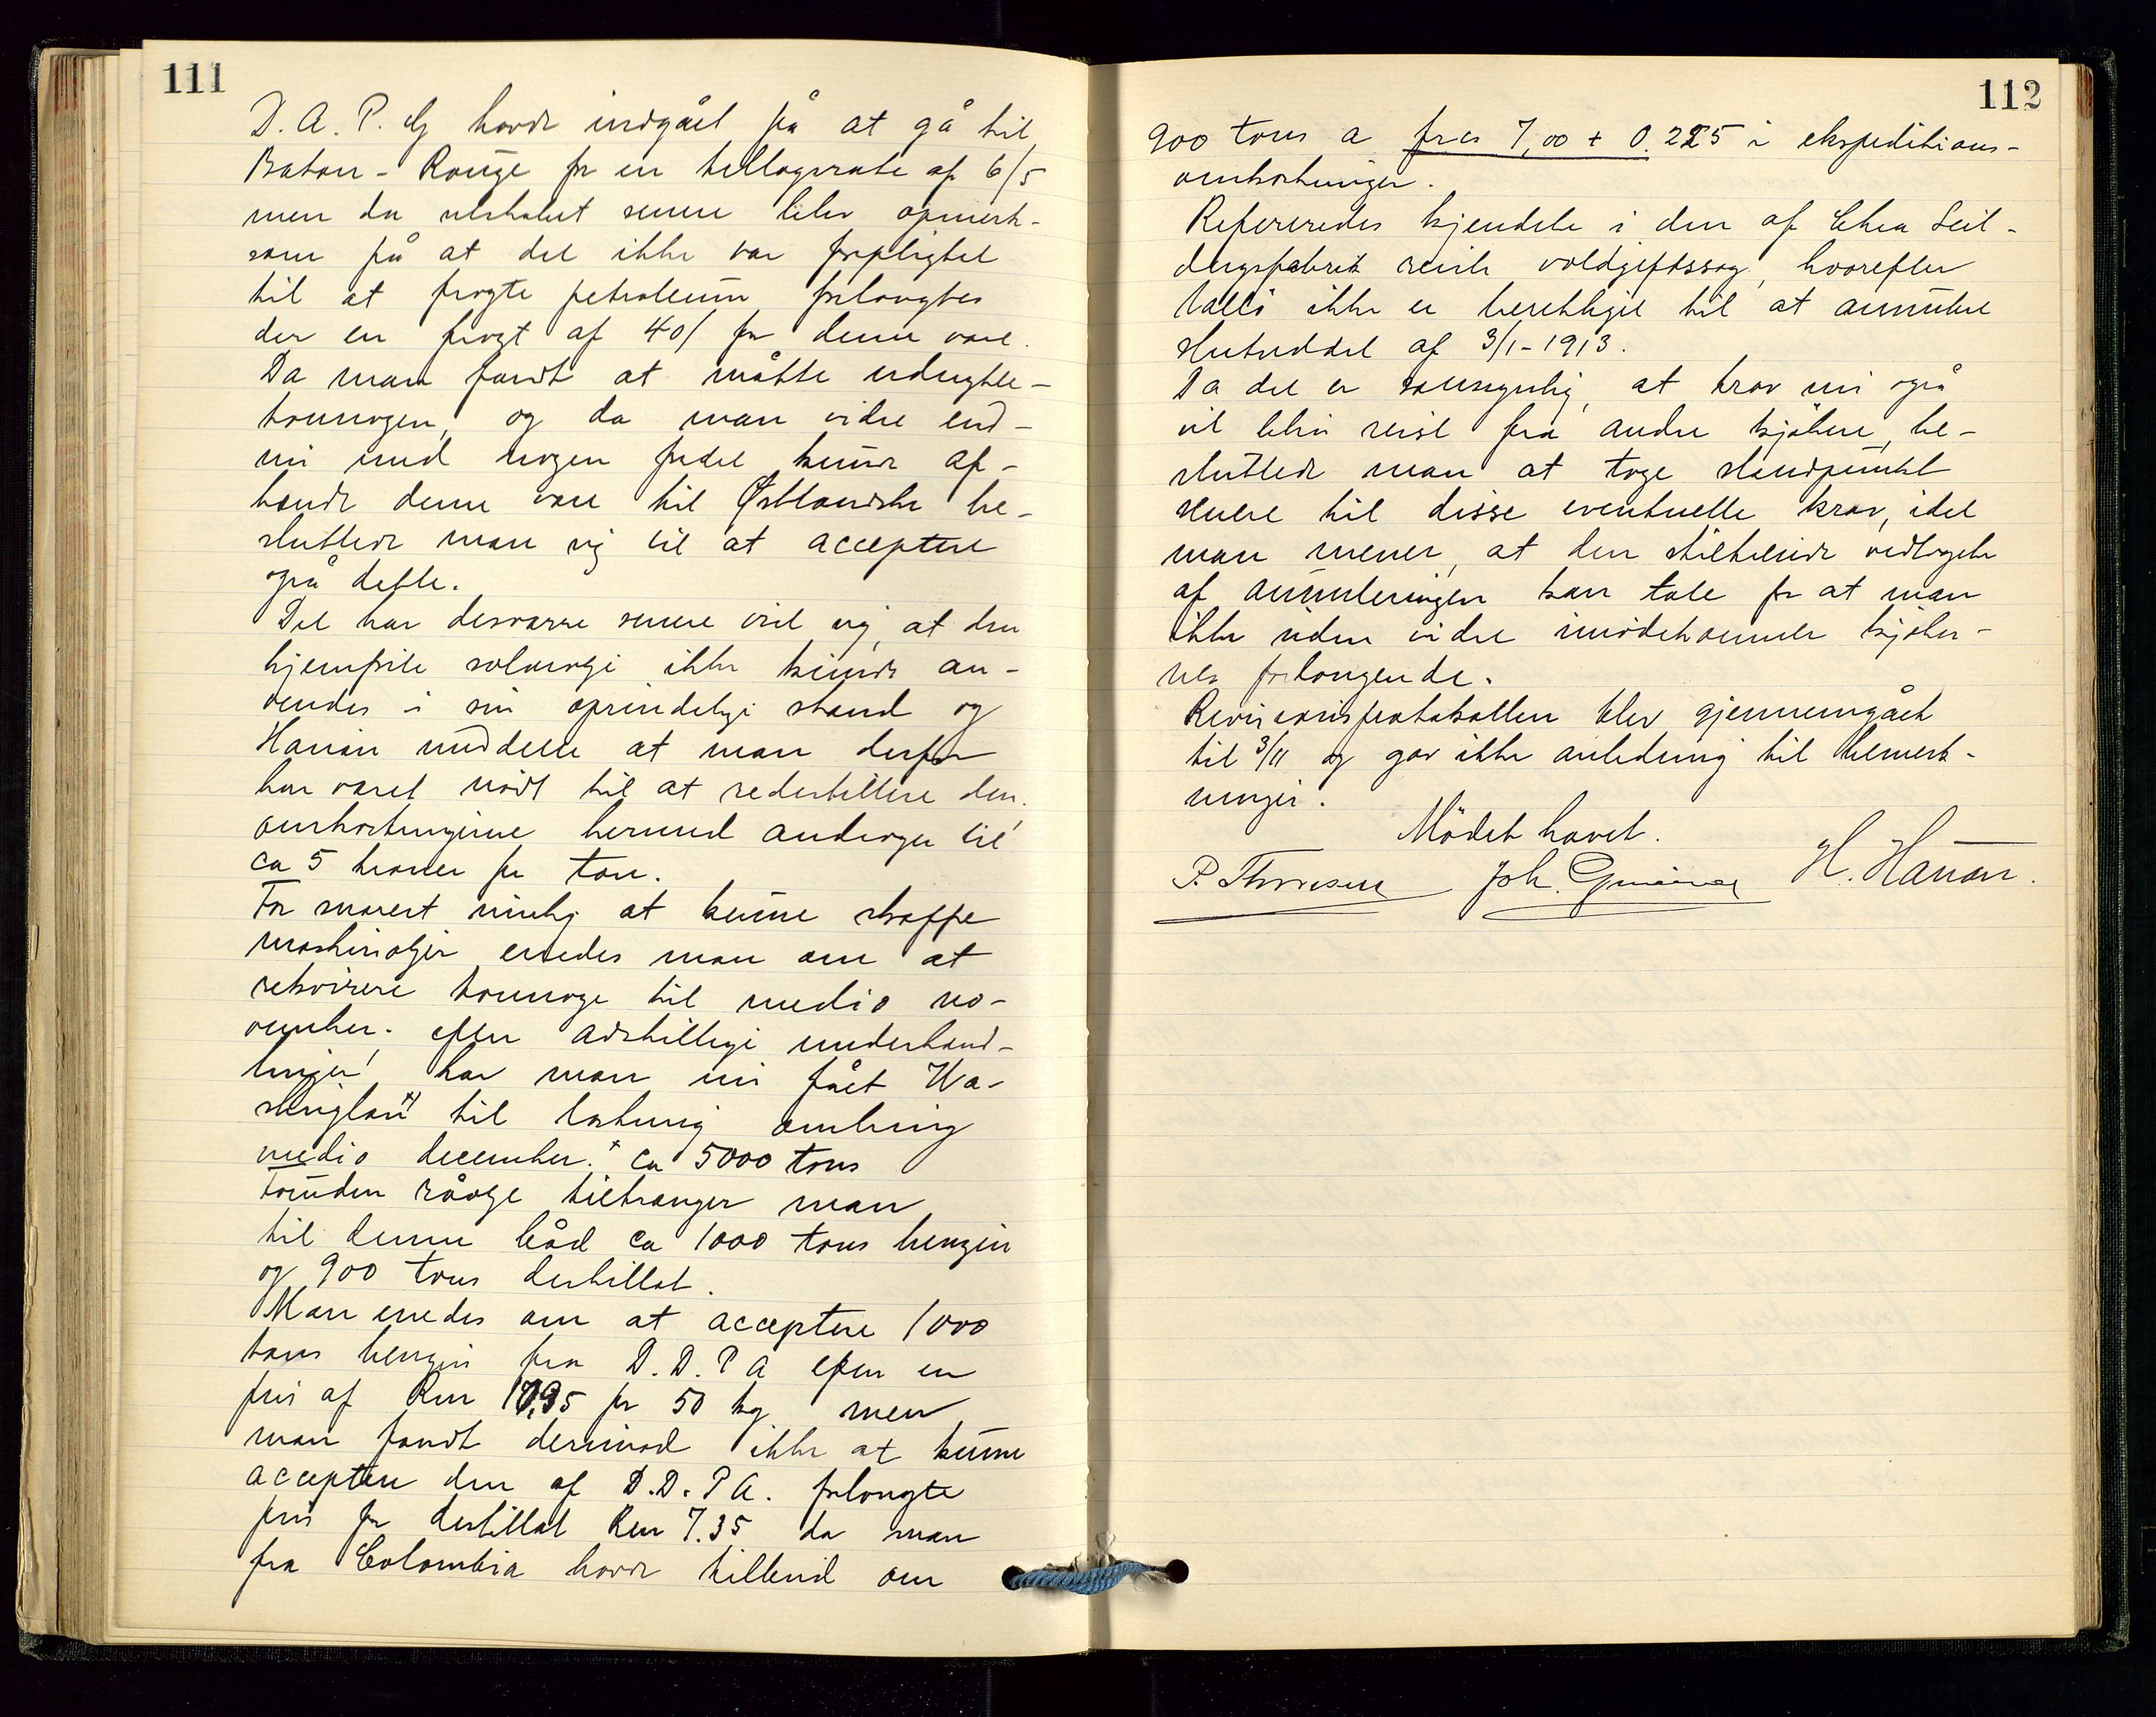 111
D. A. P. G havde indgået på at gå til
Baton-Rouge for en tillægsrate af 6/5
men da selskabet senere blev opmerk-
som på at det ikke var forpligtet
til at fragte petroleum forlangtes
der en fragt af 40/ for denne vare.
Da man fandt at måtte udnytte
tonnagen, og da man vidre end-
nu med nogen fordel kunde af-
hænde denne vare til Østlandske be-
sluttede man sig til at acceptere
også dette.
Det har desværre senere vist sig, at den
hjemførte solarolje ikke kunde an-
vendes i sin oprindelige stand og
Hanan meddelte at man derfor
har været nødt til at redestillere den.
omkostningerne hermed andrager til
ca 5 kroner pr ton.
For snarest mulig at kunne skaffe
maskinoljer enedes man om at
rekvirere tonnage til medio no-
vember. efter adskillige underhand-
linger har man nu fået Wa-
shington til lastning omkring
medio december. ca 5000 tons
Foruden råolje tiltrænger man
til denne båd ca 1000 tons benzin
og 900 tons destillat.
Man enedes om at acceptere 1000
tons benzin fra D.D.P A efter en
pris af Rm 17,95 pr 50 kg men
man fandt derimod ikke at kunne
acceptere den af D.D.P A. forlangte
pris for destillat Rm 7.35 da man
fra Colombia havde tilbud om
112
900 tons a frcs 7,00 + 0.225 i ekspeditions-
omkostninger.
Refereredes kjendelse i den af Chra Seil-
dugsfabrik reiste voldgiftssag, hvorefter
Vallö ikke er berettiget til at annulere
sluttseddel af 3/1-1913.
Da det er sansynlig, at krav nu også
vil blive reist fra andre kjøbere, be-
sluttede man at tage standpunkt
senere til disse eventuelle krav, idet
man mener, at den stiltiende vedtagelse
af annuleringen kan tale for at man
ikke uden vidre imødekommer kjøber-
nes forlangende.
Revisionsprotokollen blev gjennemgået
til 3/11 og gav ikke anledning til bemerk-
ninger.
Mödet hævet.
P. Thoresen Joh. H. Hanan.